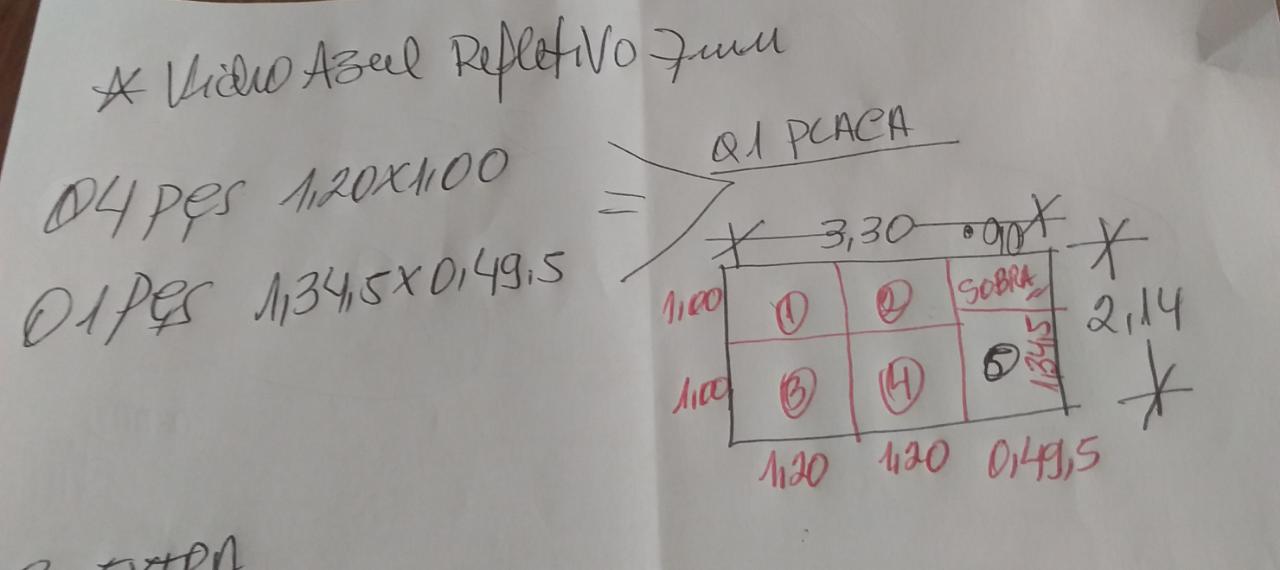 * Vidro Azul Refletivo 7mm
04 pçs 1,20x1,00
01 Pçs 1,34,5x0,49,5
=
01 PLACA
3,30
.90
2,14
1,00
1
2
SOBRA
1,00
3
4
5
1,34,5
1,20
1,20
0,49,5